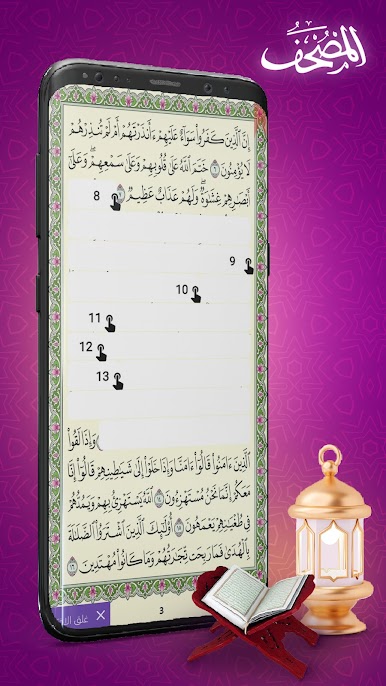 المُصْحَفُ
إِنَّ ٱلَّذِينَ كَفَرُوا۟ سَوَآءٌ عَلَيْهِمْ ءَأَنذَرْتَهُمْ أَمْ لَمْ تُنذِرْهُمْ
لَا يُؤْمِنُونَ ٦ خَتَمَ ٱللَّهُ عَلَىٰ قُلُوبِهِمْ وَعَلَىٰ سَمْعِهِمْ ۖ وَعَلَىٰٓ
أَبْصَٰرِهِمْ غِشَٰوَةٌ ۖ وَلَهُمْ عَذَابٌ عَظِيمٌ ٧
8
9
10
11
12
13
وَإِذَا لَقُوا۟
ٱلَّذِينَ ءَامَنُوا۟ قَالُوٓا۟ ءَامَنَّا وَإِذَا خَلَوْا۟ إِلَىٰ شَيَٰطِينِهِمْ قَالُوٓا۟ إِنَّا
مَعَكُمْ إِنَّمَا نَحْنُ مُسْتَهْزِءُونَ ١٤ ٱللَّهُ يَسْتَهْزِئُ بِهِمْ وَيَمُدُّهُمْ
فِى طُغْيَٰنِهِمْ يَعْمَهُونَ ١٥ أُو۟لَٰٓئِكَ ٱلَّذِينَ ٱشْتَرَوُا۟ ٱلضَّلَٰلَةَ
بِٱلْهُدَىٰ فَمَا رَبِحَت تِّجَٰرَتُهُمْ وَمَا كَانُوا۟ مُهْتَدِينَ ١٦
غلق
3